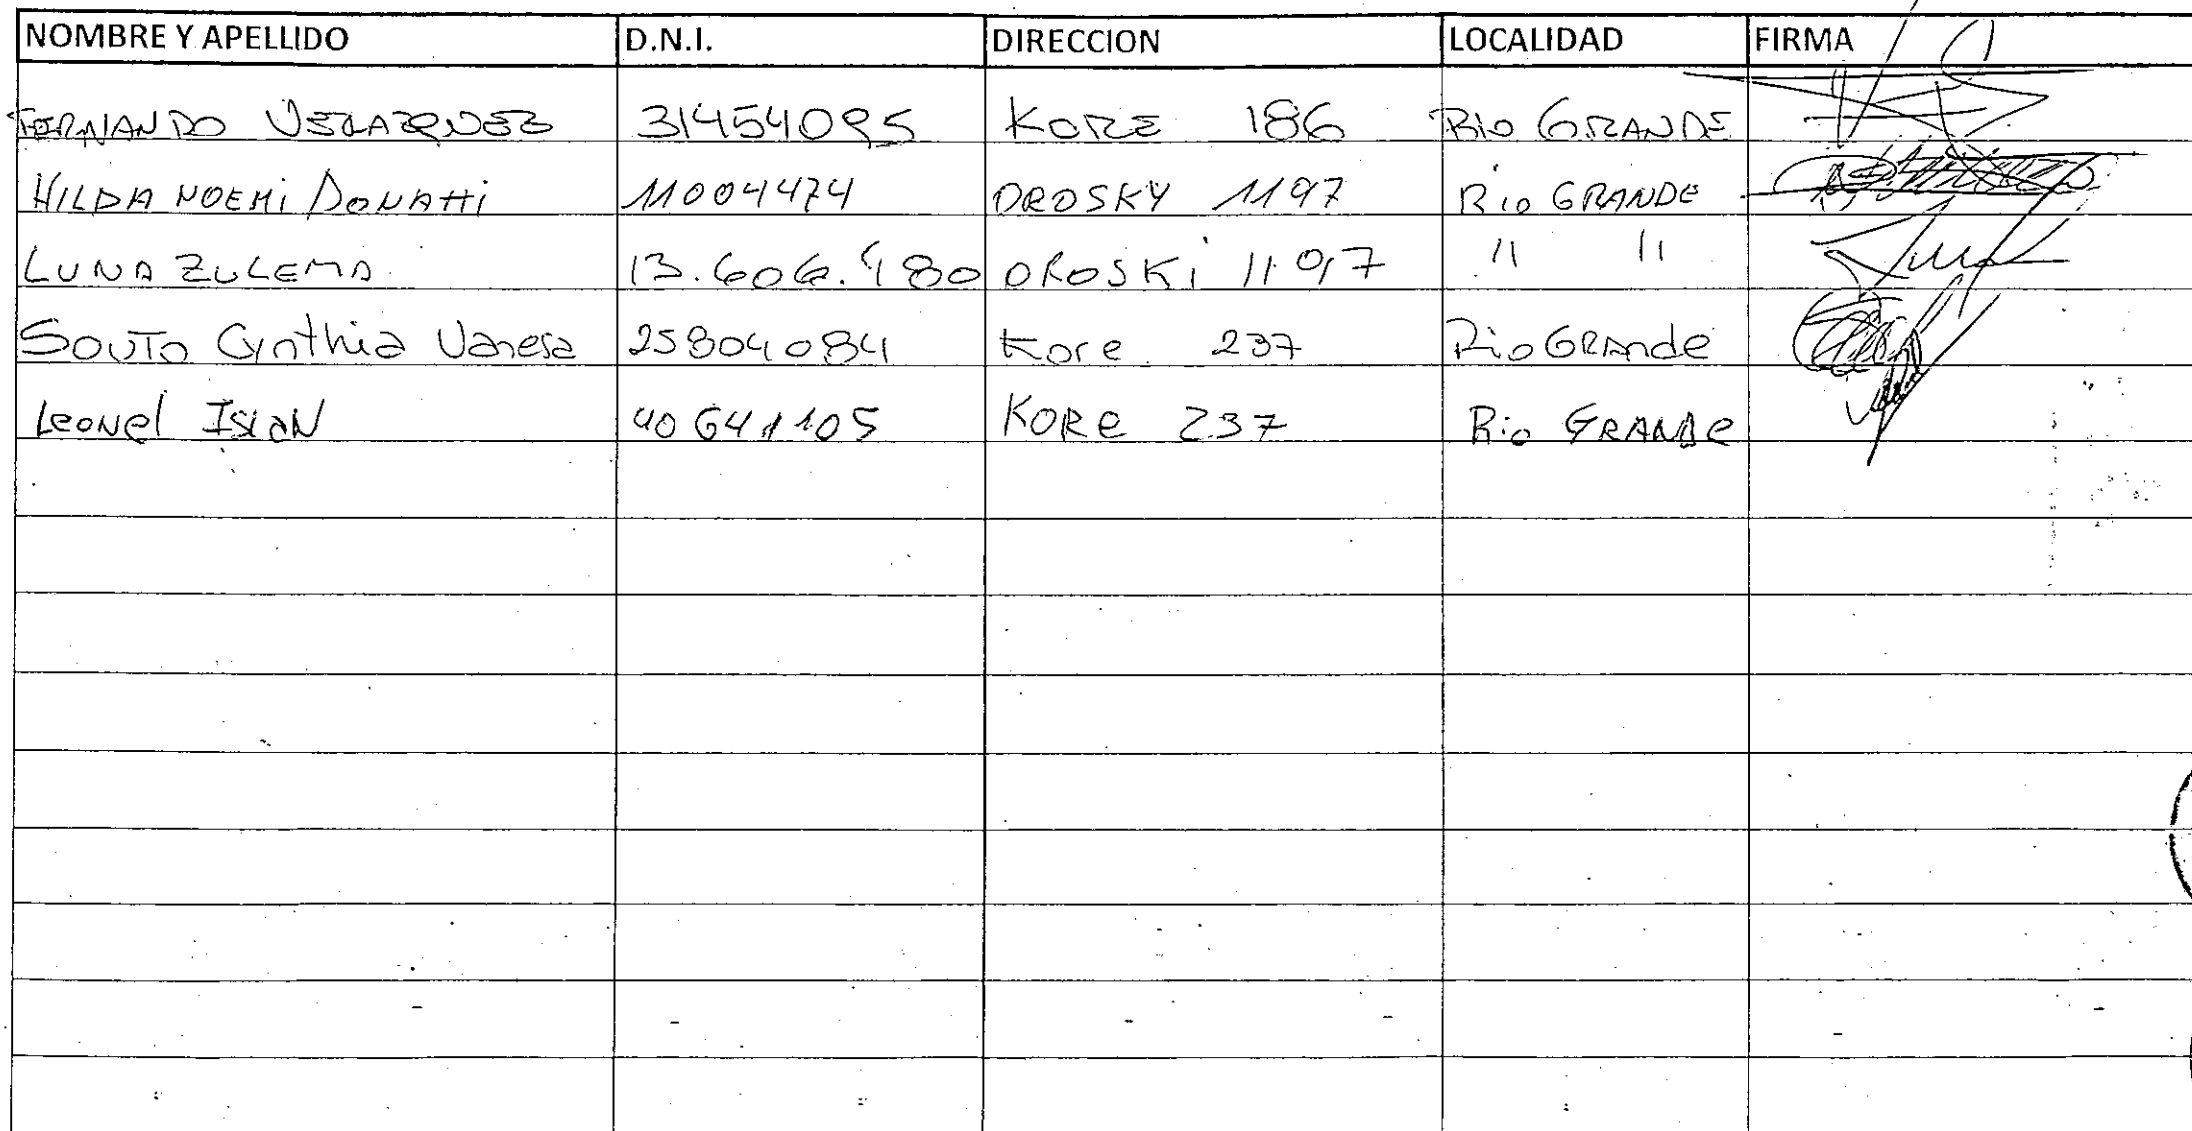 NOMBRE Y APELLIDO D.N.I. DIRECCION LOCALIDAD FIRMA
FERNANDO VELAZQUEZ 31454095 KORE 186 RIO GRANDE
HILDA NOEMI DONATTI 11004474 OROSKY 1197 Rio GRANDE
LUNA ZULEMA 13.606.480 OROSKi 1197 " "
SOUTO Cynthia Vanesa 25804084 Kore 237 Rio GRande
Leonel ISlaN 40641105 KORe 237 Rio GRANDe